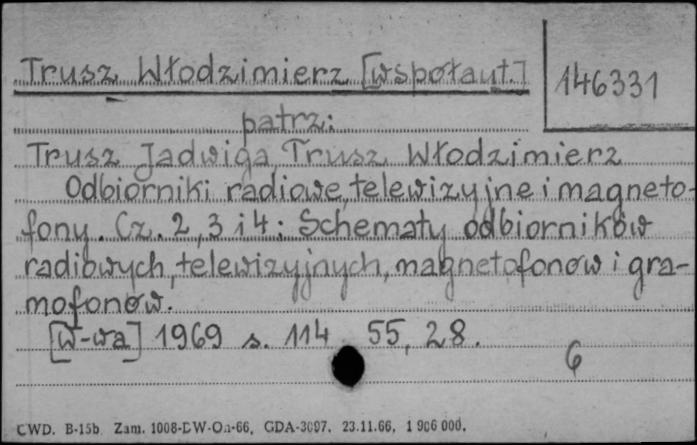 Trusz Włodzimierz [współaut.] 146331
patrz:
Trusz Jadwiga, Trusz Włodzimierz
Odbiorniki radiowe, telewizyjne i magneto-
fony. Cz. 2, 3 i 4: Schematy odbiorników
radiowych, telewizyjnych, magnetofonów i gra-
mofonów.
[W-wa] 1969 s. 114, 55, 28.
6
CWD. B-15b. Zam. 1008-DW-On-66. GDA-3097. 23.11.66. 1 906 000.